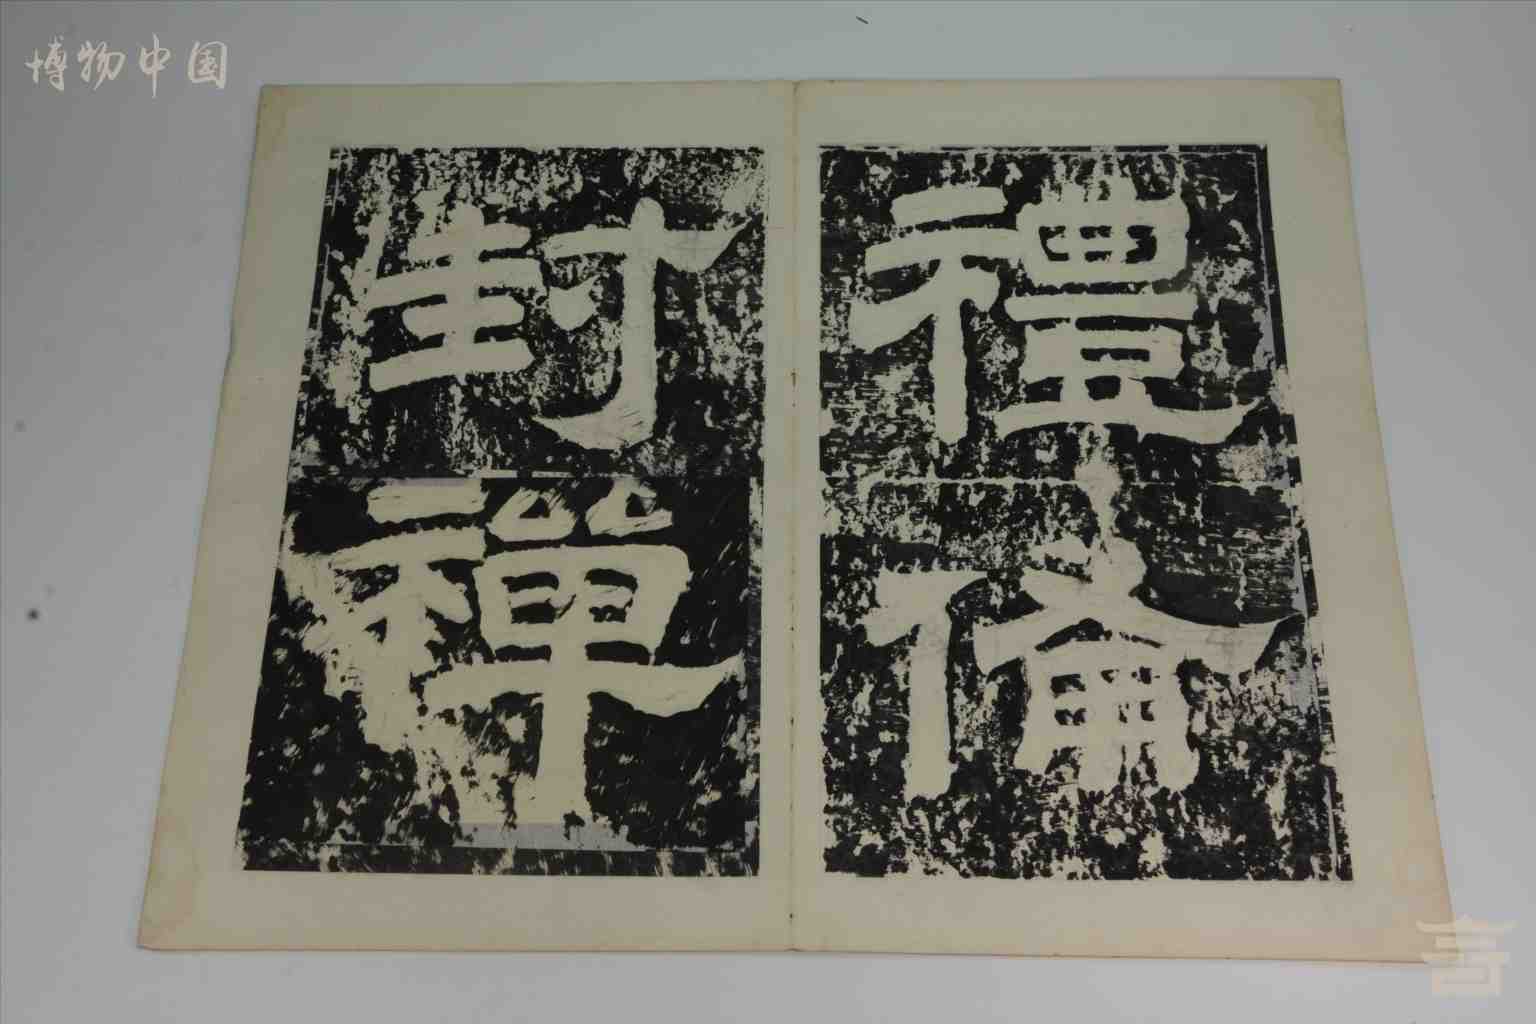 博物中国
禮備
封禪